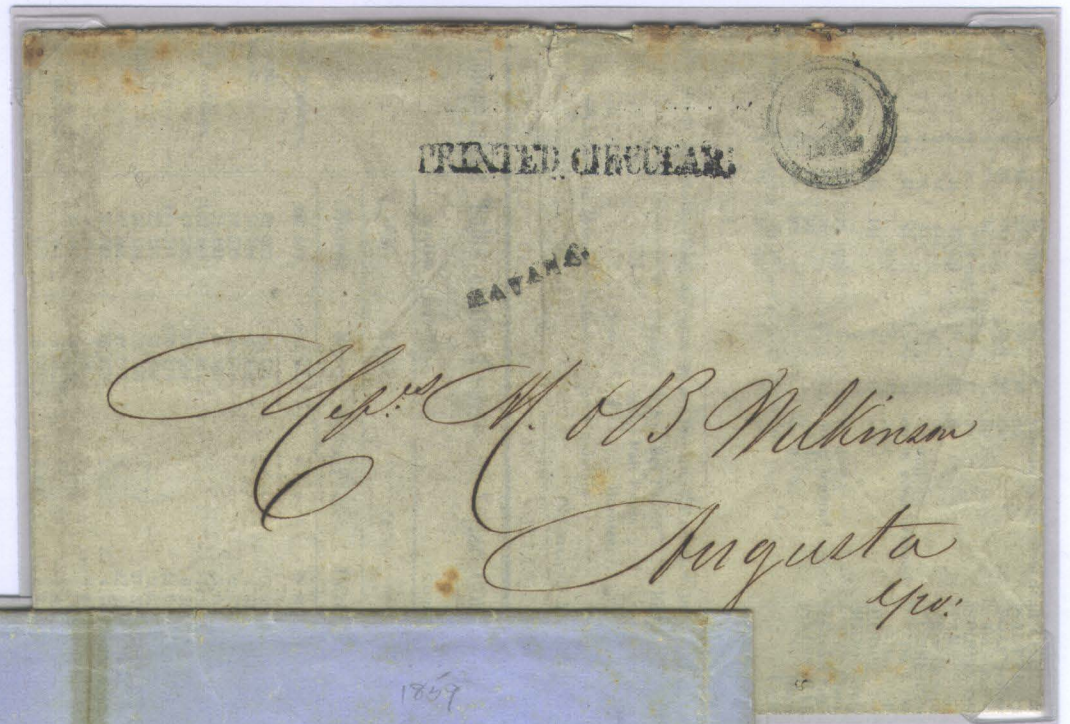 2
PRINTED CIRCULAR.
HAVANA.
Mess.rs M. & B Wilkinson
Augusta
1859